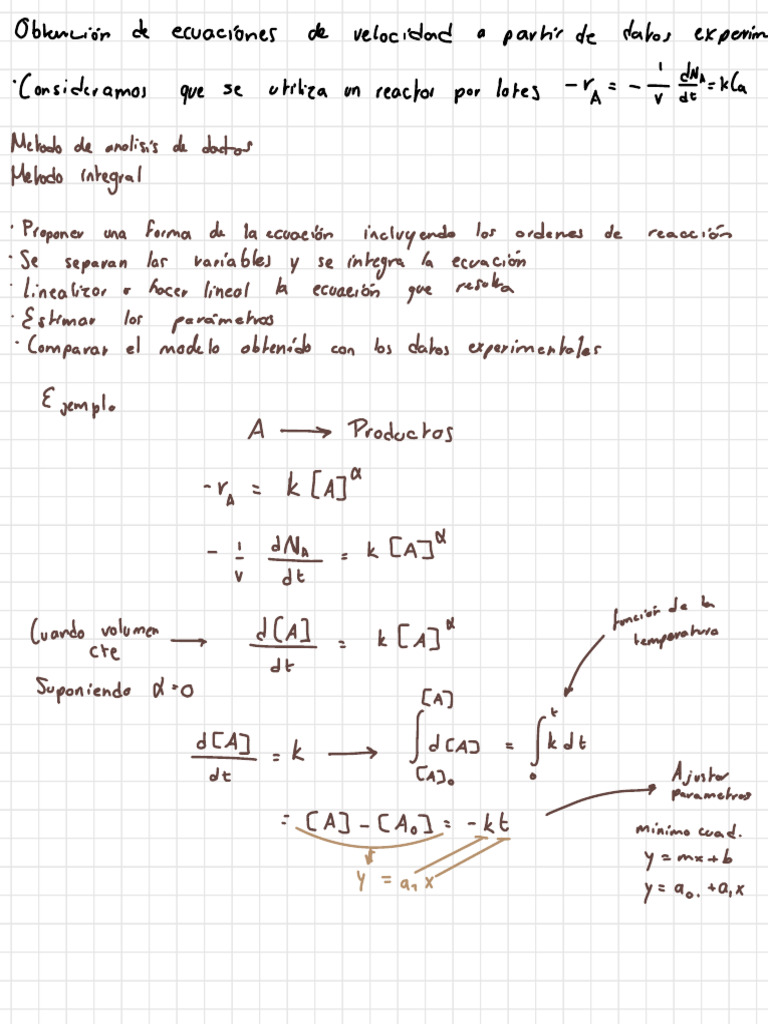 Obtención de ecuaciones de velocidad a partir de datos experim
· Consideramos que se utiliza un reactor por lotes -r_A = - 1/V dN_A/dt = kCa
Metodo de analisis de datos
Metodo integral
· Proponer una forma de la ecuación incluyendo los ordenes de reacción
· Se separan las variables y se integra la ecuación
· Linealizar o hacer lineal la ecuación que resulta
· Estimar los parámetros
· Comparar el modelo obtenido con los datos experimentales
Ejemplo
A ⟶ Productos
-r_A = k [A]^α
- 1/V dN_A/dt = k [A]^α
Cuando volumen cte ⟶ d[A]/dt = k [A]^α
función de la
temperatura
Suponiendo α=0
d[A]/dt = k ⟶ ∫_{[A]₀}^{[A]} d[A] = ∫_0^t k dt
= [A] - [A₀] = -kt
y = a₁ x
Ajustar
parametros
minimo cuad.
y = mx + b
y = a₀. + a₁x